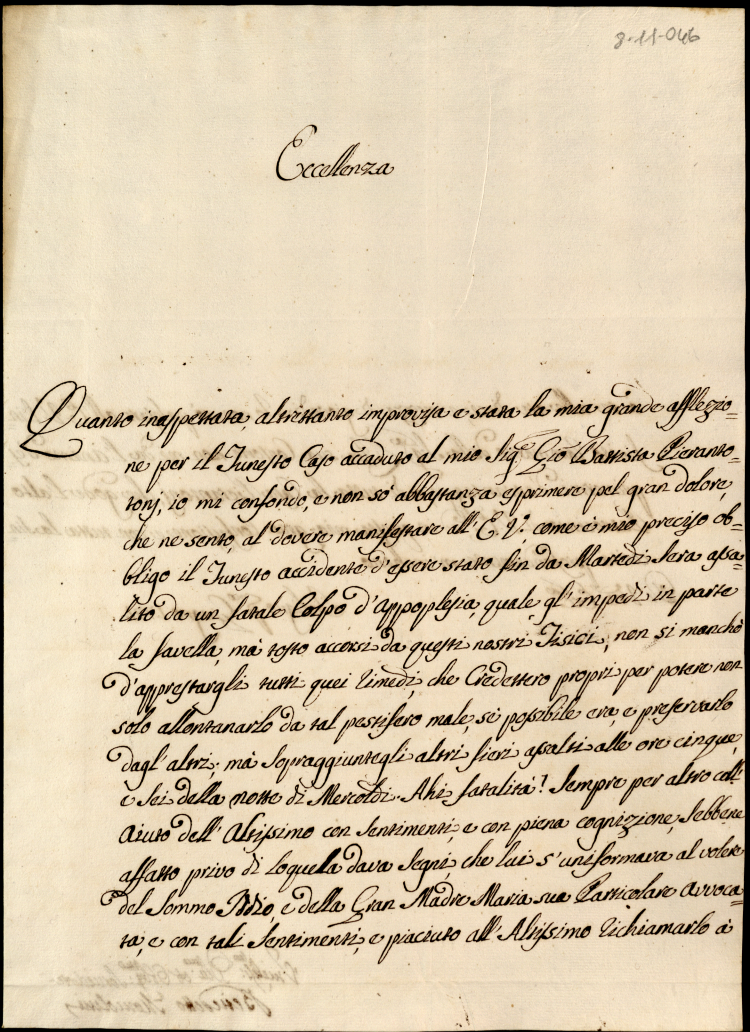 8-11-046
Excellenza
Quanto inaspettata, altrettanto improvisa e stata la mia grande afflezio=
ne per il Funesto Caso accaduto al mio Sigr. Gio Battista Pieranto=
tonj, io mi confondo, e non so abbastanza esprimere pel gran dolore,
che ne sento, al dovere manifestare all'E. V. come è mio preciso ob=
bligo il Funesto accidente d'essere stato fin da Martedì Sera assa=
lito da un fatale Colpo d'Appoplesia, quale gl'impedì in parte
la favella, mà tosto accorsi da questi nostri Fisici, non si manchò
d'apprestargli tutti quei Rimedj, che Credettero proprj per potere non
solo allontanarlo da tal pestifero male, se possibile era, e preservarlo
dagl'altri; mà Sopraggiuntegli altri fieri assalti alle ore cinque,
e Sei della notte di Mercoldì. Ahi fatalità! Sempre per altro coll'
Aiuto dell'Altissimo con Sentimenti, e con piena cognizione, Sebbene
affatto privo di Loquella dava Segni, che lui s'uniformava al volere
del Sommo Iddio, e della Gran Madre Maria sua Particolare Avvoca=
ta, e con tali Sentimenti, e piaciuto all'Altissimo Richiamarlo à